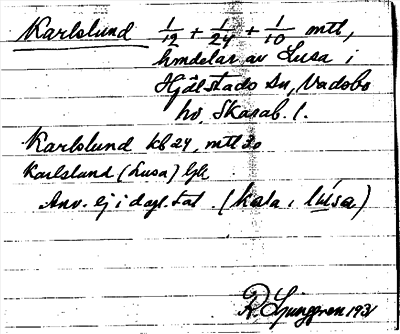 Karlslund 1/12 + 1/24 + 1/10 mtl,
hmdelar av Lusa i
Hjälstads sn, Vadsbo
hd, Skarab. l.
Karlslund kb 24, mtl 30
Karlslund (Lusa) Gk
Anv. ej i dagl. tal. (kala i lusa)
R. Ljunggren 1931